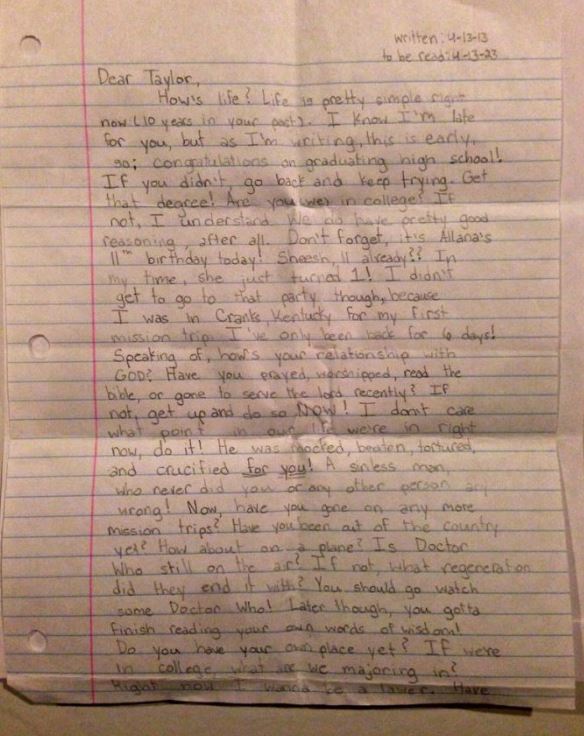 written: 4-13-13
to be read: 4-13-23
Dear Taylor,
How's life? Life is pretty simple right
now (10 years in your past). I know I'm late
for you, but as I'm writing, this is early,
so; congratulations on graduating high school!
If you didn't, go back and keep trying. Get
that degree! Are you in college? If
not, I understand. We do have pretty good
reasoning, after all. Don't forget, it's Allana's
11th birthday today! Sheesh, 11 already?? In
my time, she just turned 1! I didn't
get to go to that party though, because
I was in Cranks, Kentucky for my first
mission trip. I've only been back for 6 days!
Speaking of, how's your relationship with
GOD? Have you prayed, worshipped, read the
bible, or gone to serve the lord recently? If
not, get up and do so NOW! I don't care
what point in our life we're in right
now, do it! He was mocked, beaten, tortured,
and crucified for you! A sinless man,
who never did you or any other person any
wrong! Now, have you gone on any more
mission trips? Have you been out of the country
yet? How about on a plane? Is Doctor
Who still on the air? If not, what regeneration
did they end it with? You should go watch
some Doctor Who! Later though, you gotta
finish reading your own words of wisdom!
Do you have your own place yet? If we're
in college, what are we majoring in?
Right now I wanna be a lawer. Have